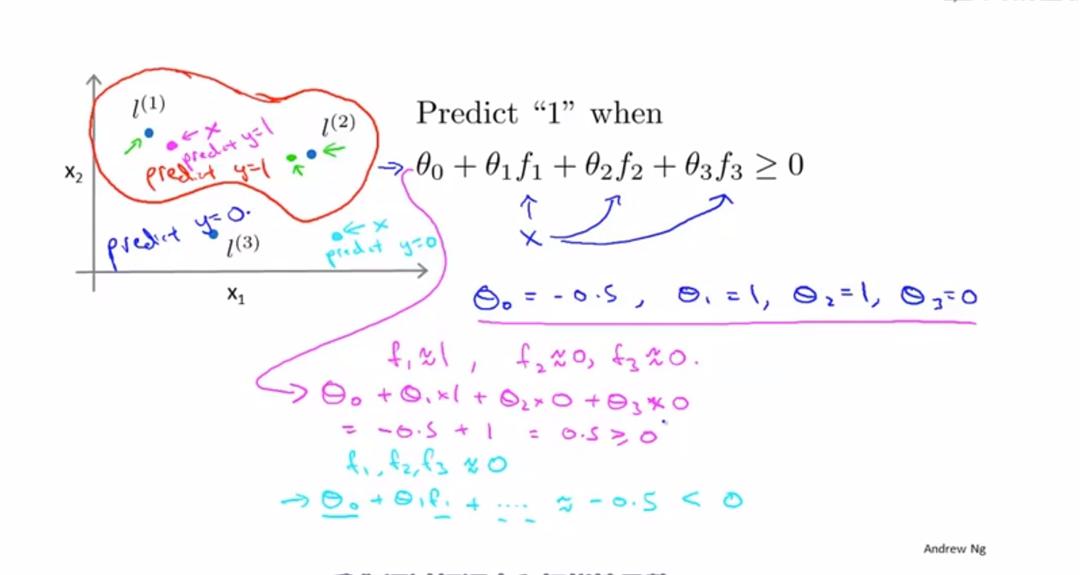 l^{(1)}
← x
predict y=1
l^{(2)}
predict y=1
x₂
predict y=0.
l^{(3)}
← x
predict y=0
x₁
Predict “1” when
→ θ₀ + θ₁f₁ + θ₂f₂ + θ₃f₃ ≥ 0
x
θ₀ = -0.5, θ₁ = 1, θ₂ = 1, θ₃ = 0
f₁ ≈ 1, f₂ ≈ 0, f₃ ≈ 0.
→ θ₀ + θ₁ × 1 + θ₂ × 0 + θ₃ × 0
= -0.5 + 1 = 0.5 ≥ 0
f₁, f₂, f₃ ≈ 0
→ θ₀ + θ₁f₁ + .... ≈ -0.5 < 0
Andrew Ng